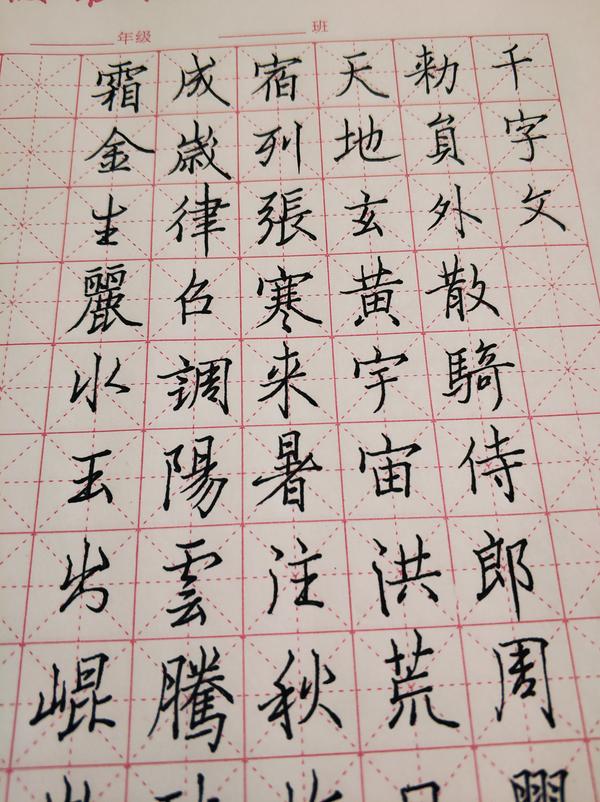 年級 班
千字文
勑員外散騎侍郎周
天地玄黄宇宙洪荒
宿列張寒来暑注秋
成歳律吕調陽雲騰
霜金生麗水玉出崐